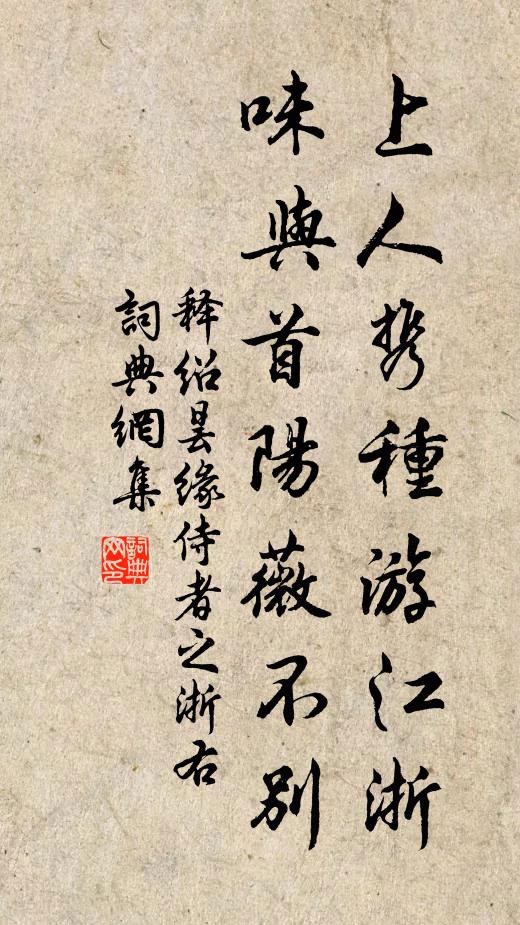 上人携種游江浙
味與首陽薇不別
释紹曇缘侍者之浙右
詞典網集
詞典网印